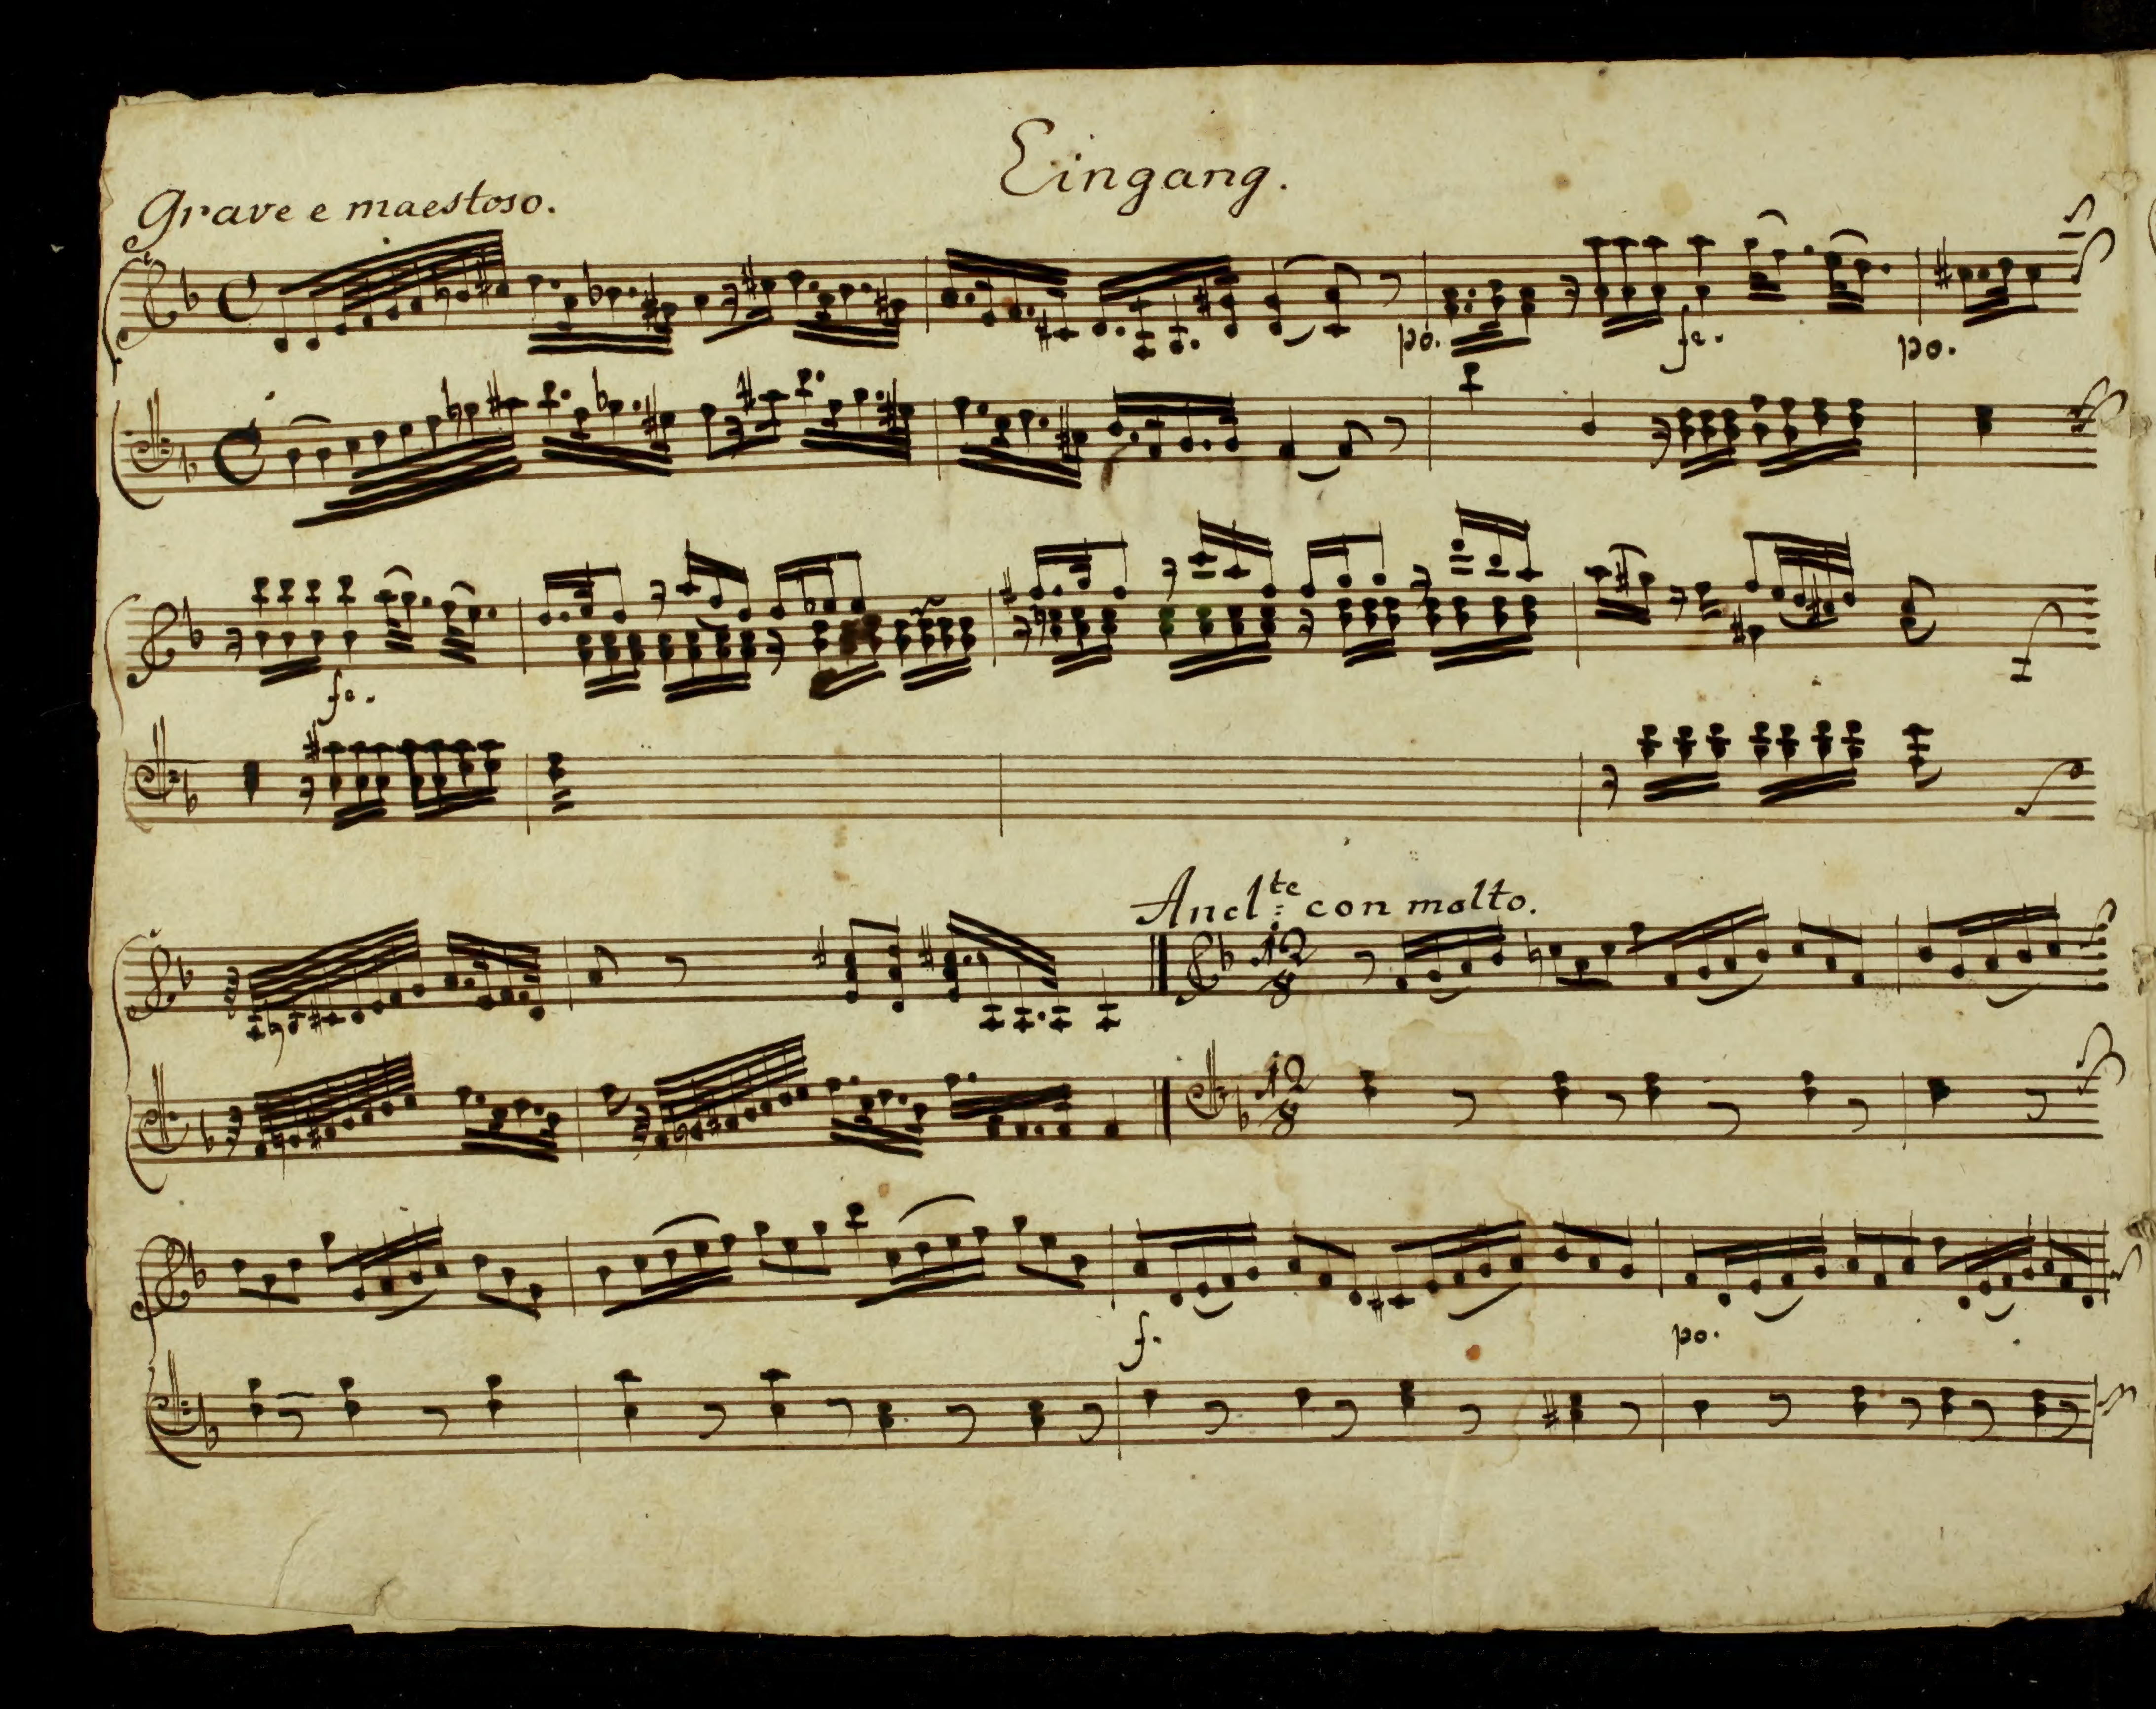 Eingang.
Grave e maestoso.
po. fe. po.
fe.
And:te con molto.
12
8
12
8
f. po.